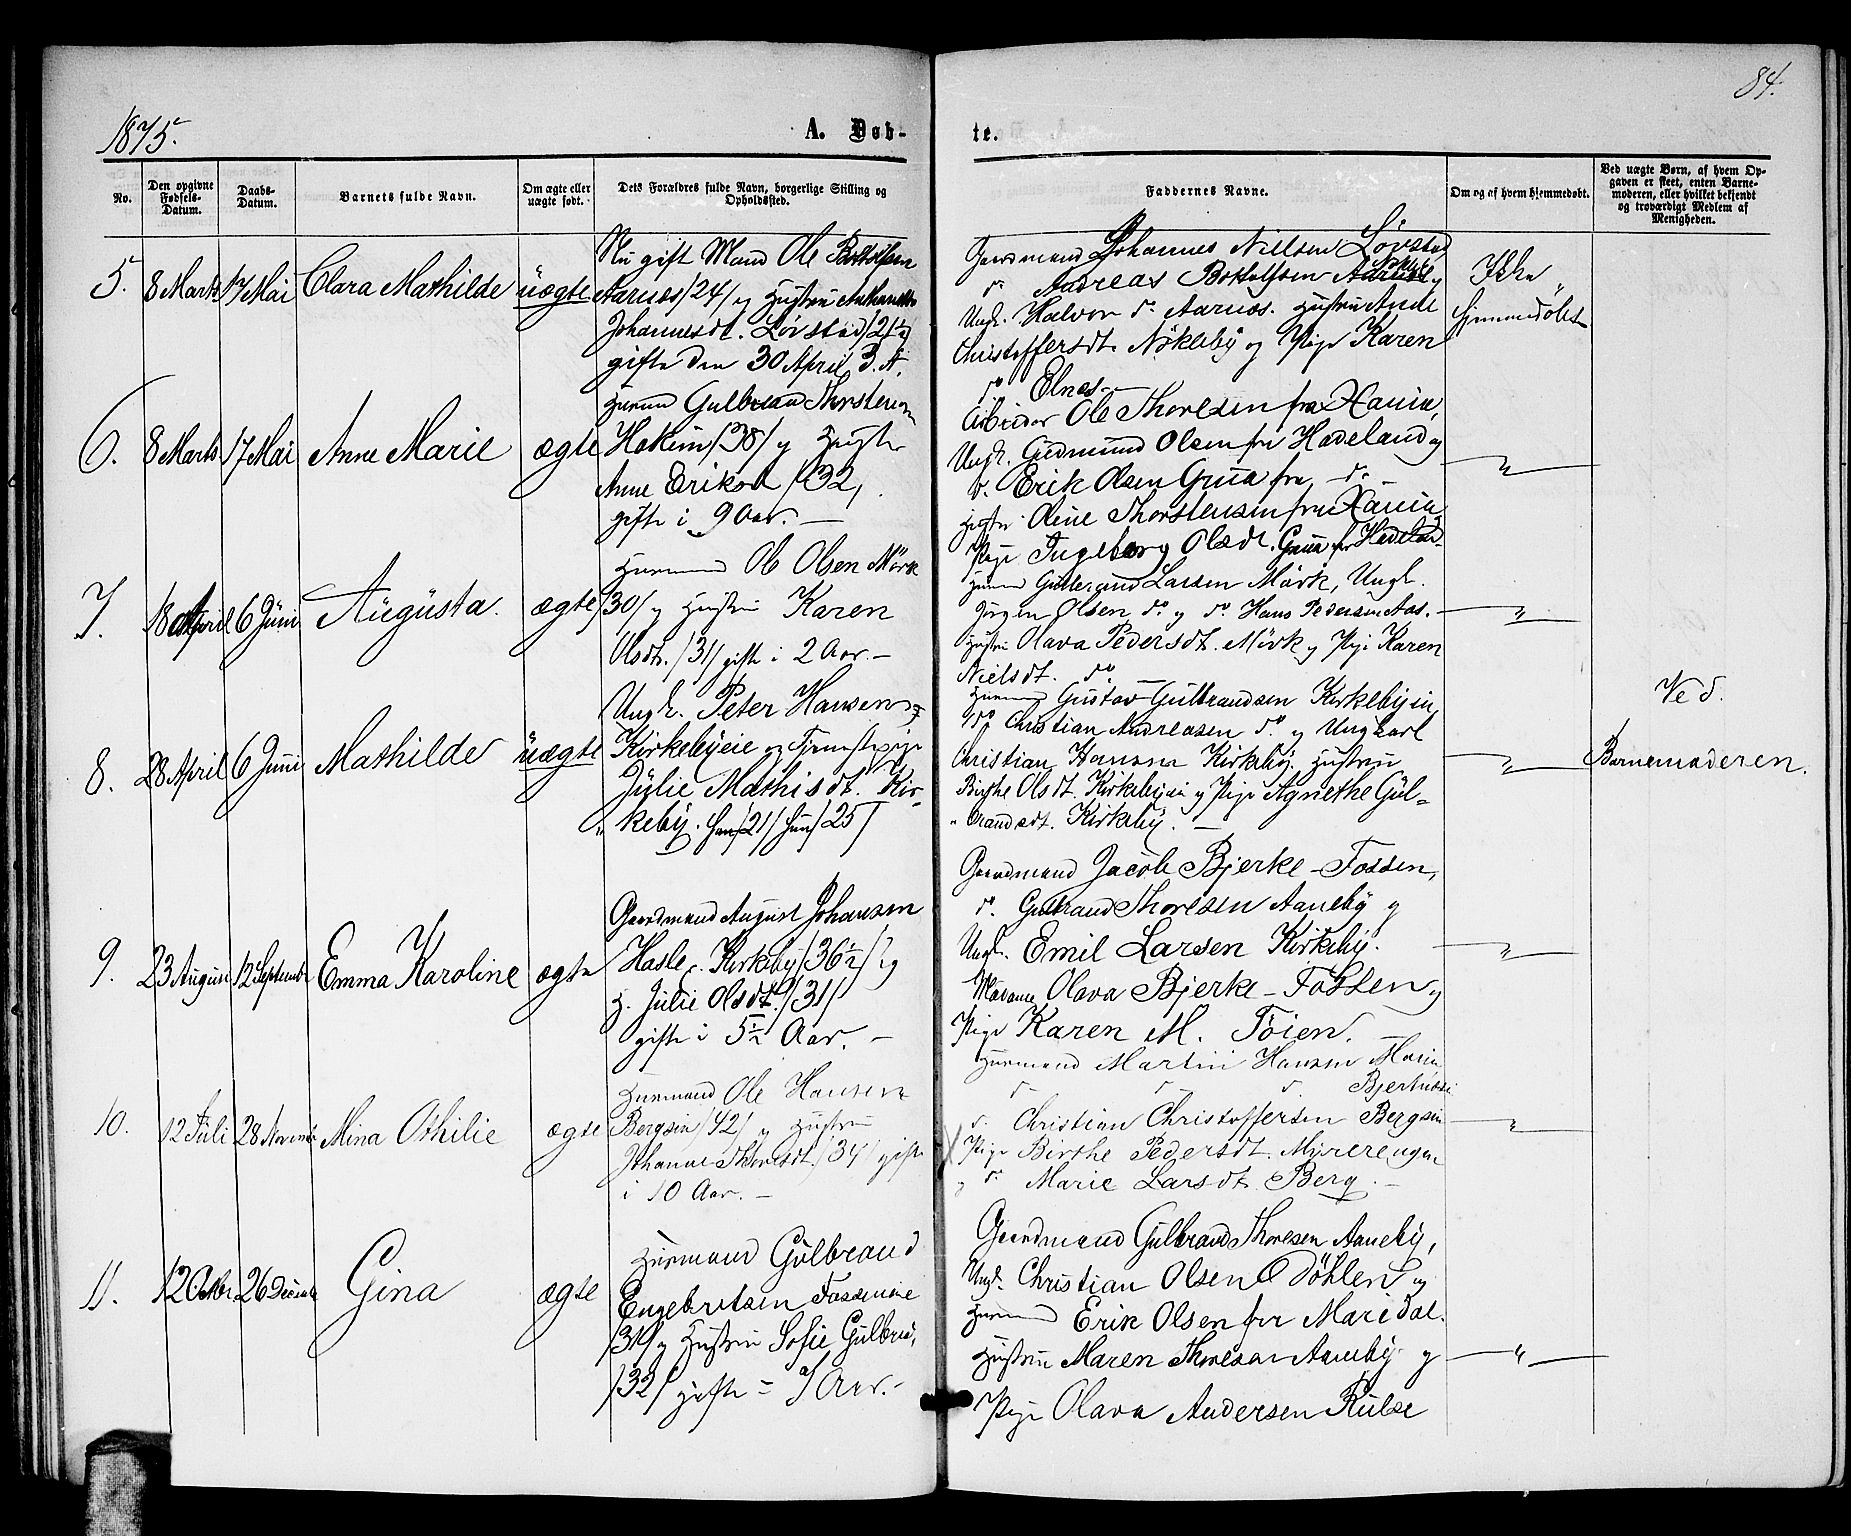 84.
1875. A. Døb- te.
No. Den opgivne Fødsels-Datum. Daabs-Datum. Barnets fulde Navn. Om ægte eller uægte født. Dets Forældres fulde Navn, borgerlige Stilling og Opholdssted. Faddernes Navne. Om og af hvem hjemmedøbt. Ved uægte Børn, af hvem Opgaven er skeet, enten Barnemoderen, eller hvilket bekjendt og troværdigt Medlem af Menigheden.
5. 8 Marts 17 Mai Clara Mathilde uægte
Nu gift Mand Ole
Aarnæs /24/ og Hustru
Johannesdt. Løvstad /21½/
gifte den 30 April d. A.
Gaardmand Johannes Nielsen Løvstad
do. Andreas Bottolfsen
Ungk. Halvor do. Aarnæs. Hustru
Christoffersdt. Nökleby og Pige Karen
do. Elnæs.
Ikke
hjemmedøbt
6. 8 Marts 17 Mai Anne Marie ægte
Husmd Gulbrand Thorstensen
Hakin /38/ og Hustru
Anne Eriksd /32/
gifte i 9 Aar. —
Arbeider Ole Thoresen fra
Ungk. Gudmund Olsen fra Hadeland og
do. Erik Olsen Grua fra do. —
Hustru Oline Thorstensen fra
Pige Ingeborg Olsdt. Grua fra Hadeland
— " —
7. 18 April 6 Juni Augusta. ægte
Husmand Ole Olsen Mörk
/30/ og Hustru Karen
Olsdt. /31/ gifte i 2 Aar. —
Husmd Gulbrand Larsen Mörk, Ungk.
Jörgen Olsen do. og do. Hans Pedersen Aas.
Hustru Olava Pedersdt. Mörk og Pige Karen
Nielsdt. do.
— " —
8. 28 April 6 Juni Mathilde uægte
Ungk. Peter Hansen
Kirkebyeie og Tjenestepige
Julie Mathisdt. Kir-
keby. han /21/ hun /25/
Husmand Gustav Gulbrandsen Kirkebyein,
do Christian Andreasen do. og Ungkarl
Christian Hansen Kirkeby. Hustru
Birthe Olsdt. Kirkebyeie og Pige Agnethe Gul-
brandsdt. Kirkeby. —
— " —
Ved
Barnemoderen.
9. 23 August 12 September Emma Karoline ægte
Gaardmand August Johansen
Hasle, Kirkeby /36½/ og
H. Julie Olsdt. /31/
gifte i 5½ Aar. —
Gaardmand Jacob Bjerke-Fossen,
do. Gulbrand Thoresen Aaneby og
Ungk. Emil Larsen Kirkeby.
Madame Olava Bjerke-Fossen og
Pige Karen M. Töien. —
— " —
10. 12 Juli 28 November Mina Othilie ægte
Husmand Ole Hansen
Bergsein /42/ og Hustru
Johanne Thoresdt. /34/ gifte
i 10 Aar. —
Husmand Martin Hansen
do. do. do.
do. Christian Christoffersen Bergsein
Pige Birthe Pedersdt. Myrerengen
og do. Marie Larsdt. Berg. —
— " —
11. 12 Octbr 26 December Gina ægte
Husmand Gulbrand
Engebretsen Fosseneie
/31/ og Hustru Sofie Gulbrd.
/32/ gifte i 7 Aar. —
Gaardmand Gulbrand Thoresen Aaneby,
Ungk. Christian Olsen Döhlen og
Husmand Erik Olsen fra Maridal.
Hustru Maren Thoresen Aaneby og
Pige Olava Andersen
— " —